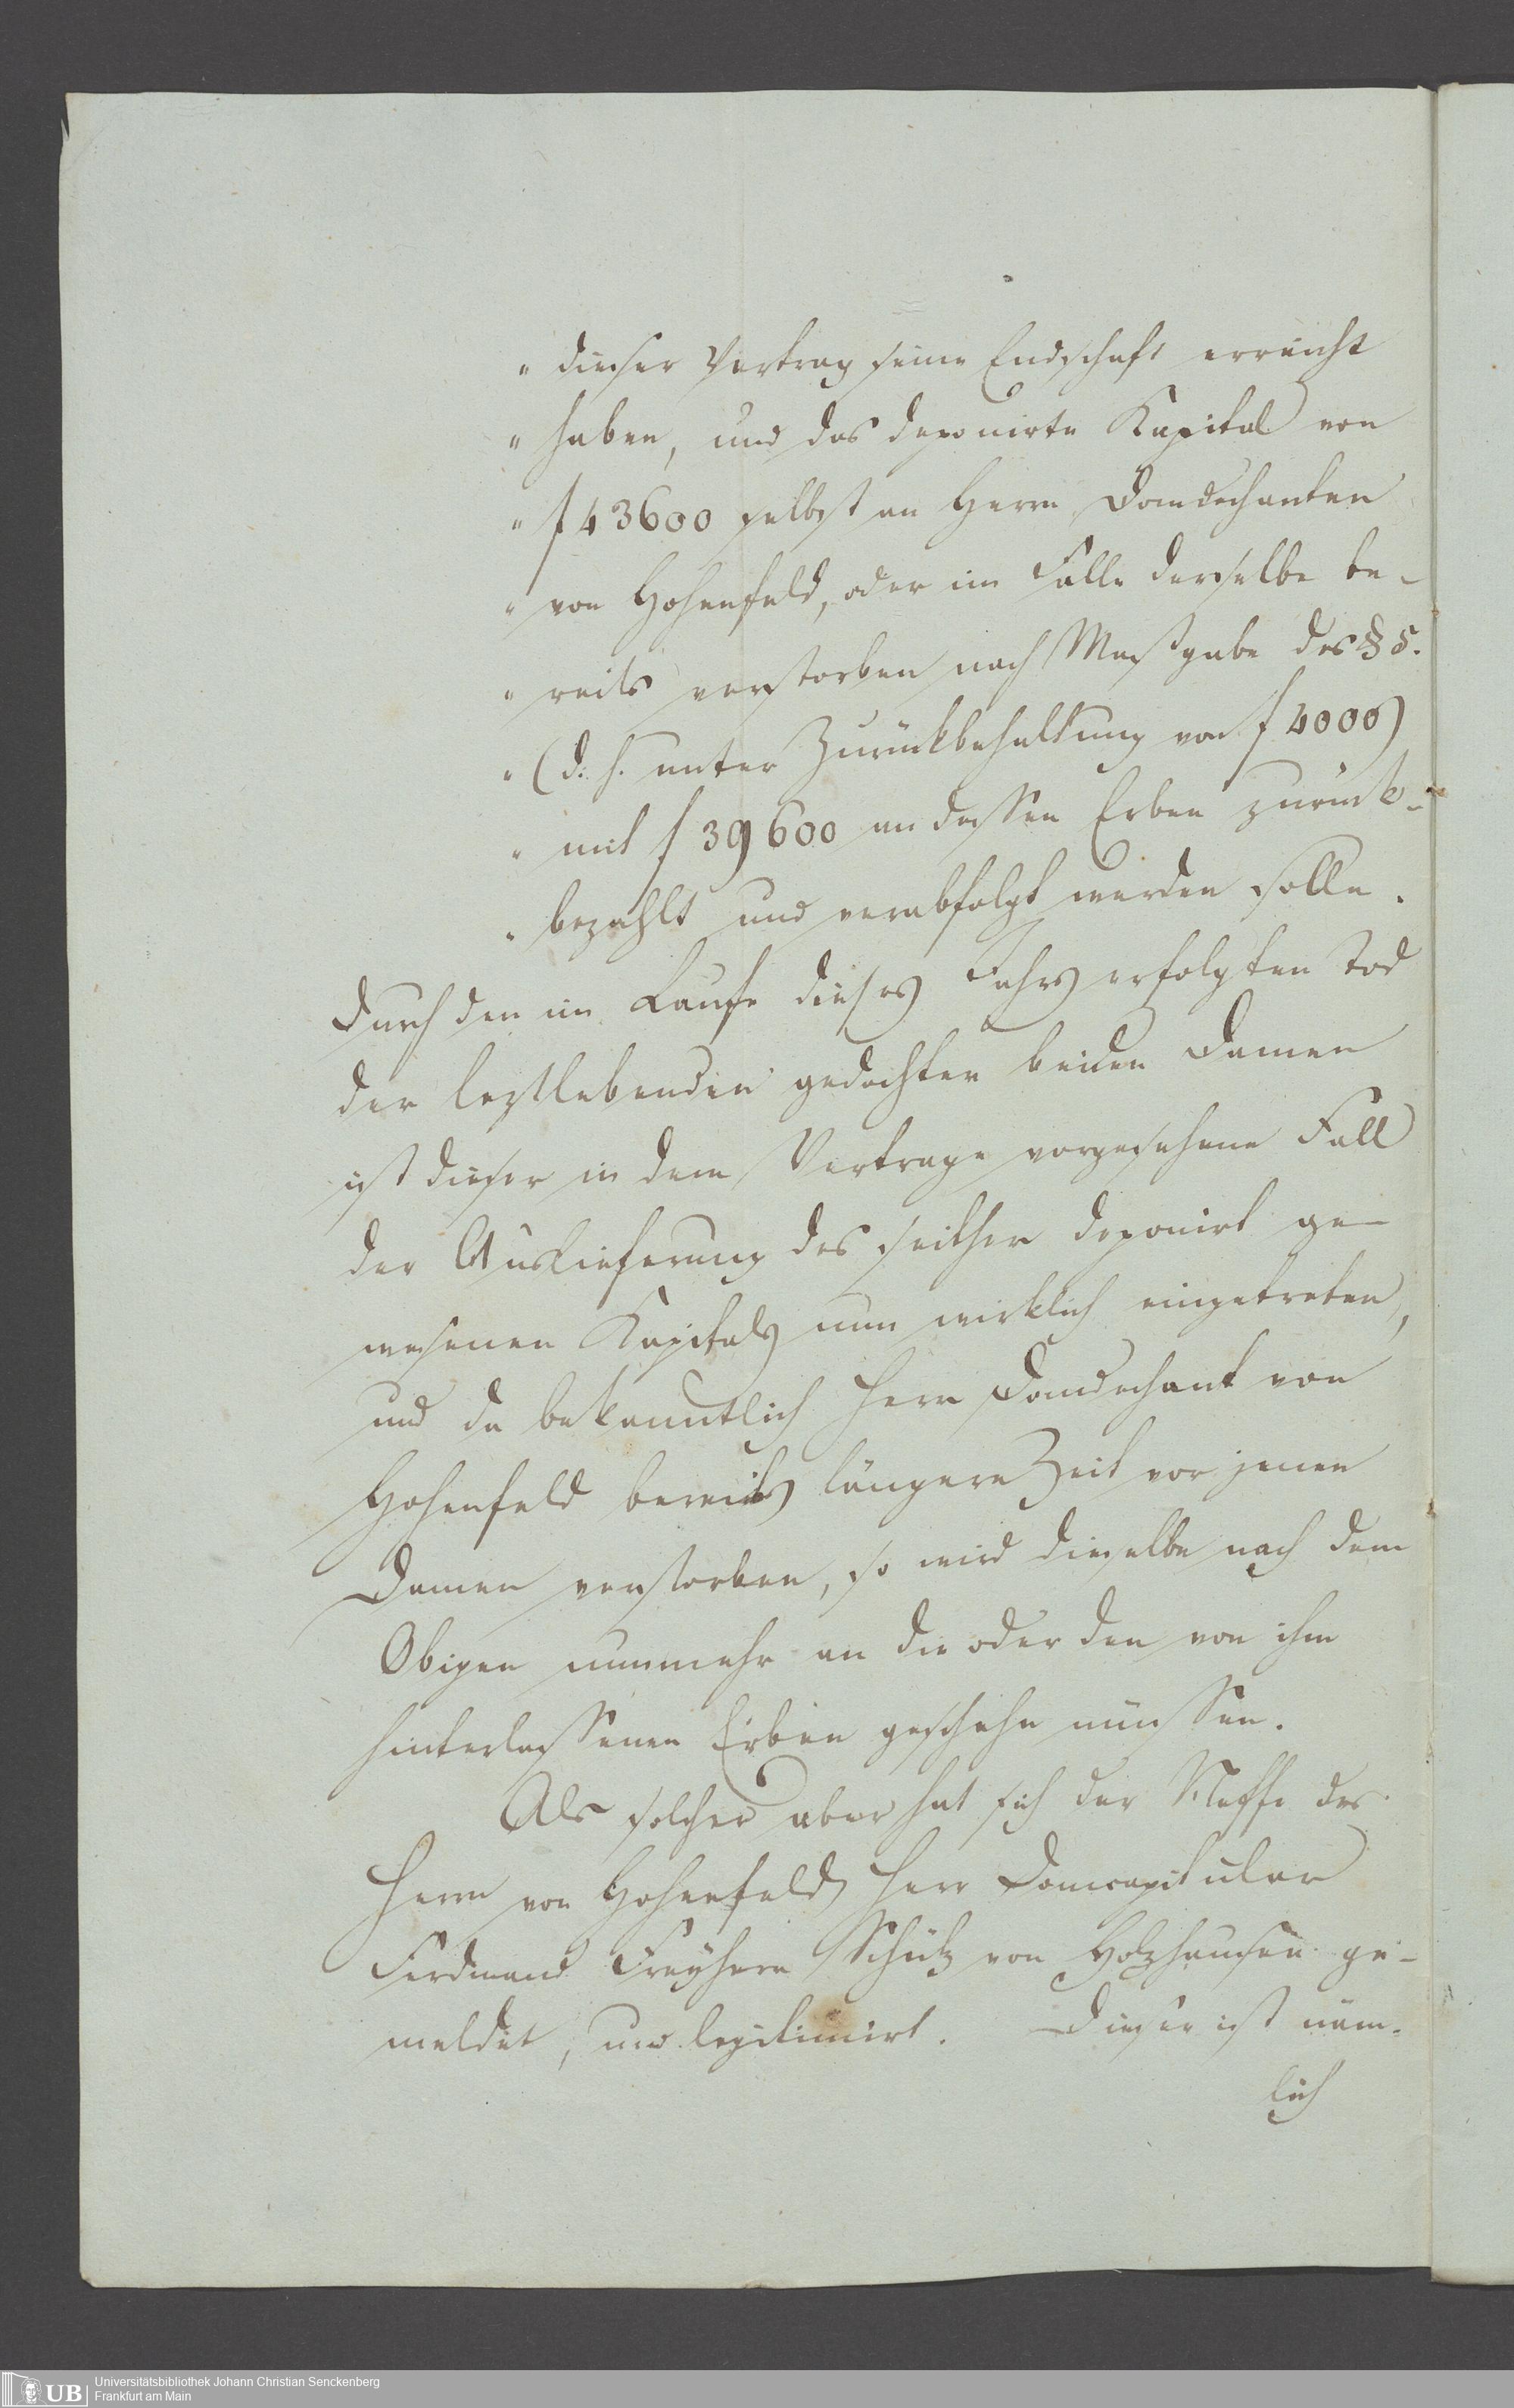 „ dieser Vertrag seine Endschaft erreicht
„ haben, und das deponirte Kapital von
„ f 43600 selbst an Herrn Domdechanten
„ von Hohenfeld, oder im Falle derselbe be-
„ reits verstorben nach Maßgabe des § 5.
„ (d. h. unter Zurückbehaltung von f 4000)
„ mit f 39600 an dessen Erben zurück-
„ bezahlt und verabfolgt werden solle.
Durch den im Laufe dieses Jahrs erfolgten Tod
der leztlebenden gedachter beiden Damen
ist dieser in dem Vertrage vorgesehene Fall
der Auslieferung des seither deponirt ge-
wesenen Kapitals nun wirklich eingetreten,
und da bekanntlich Herr Domdechant von
Hohenfeld bereits längere Zeit vor jenen
Damen verstorben, so wird dieselbe nach dem
Obigen nunmehr an die oder den von ihm
hinterlassenen Erben geschehn müssen.
Als solcher aber hat sich der Neffe des
Herrn von Hohenfeld, Herr Domcapitular
Ferdinand Freyherr Schütz von Holzhausen ge-
meldet, und legitimirt. Dieser ist näm-
lich
Universitätsbibliothek Johann Christian Senckenberg
Frankfurt am Main
UB